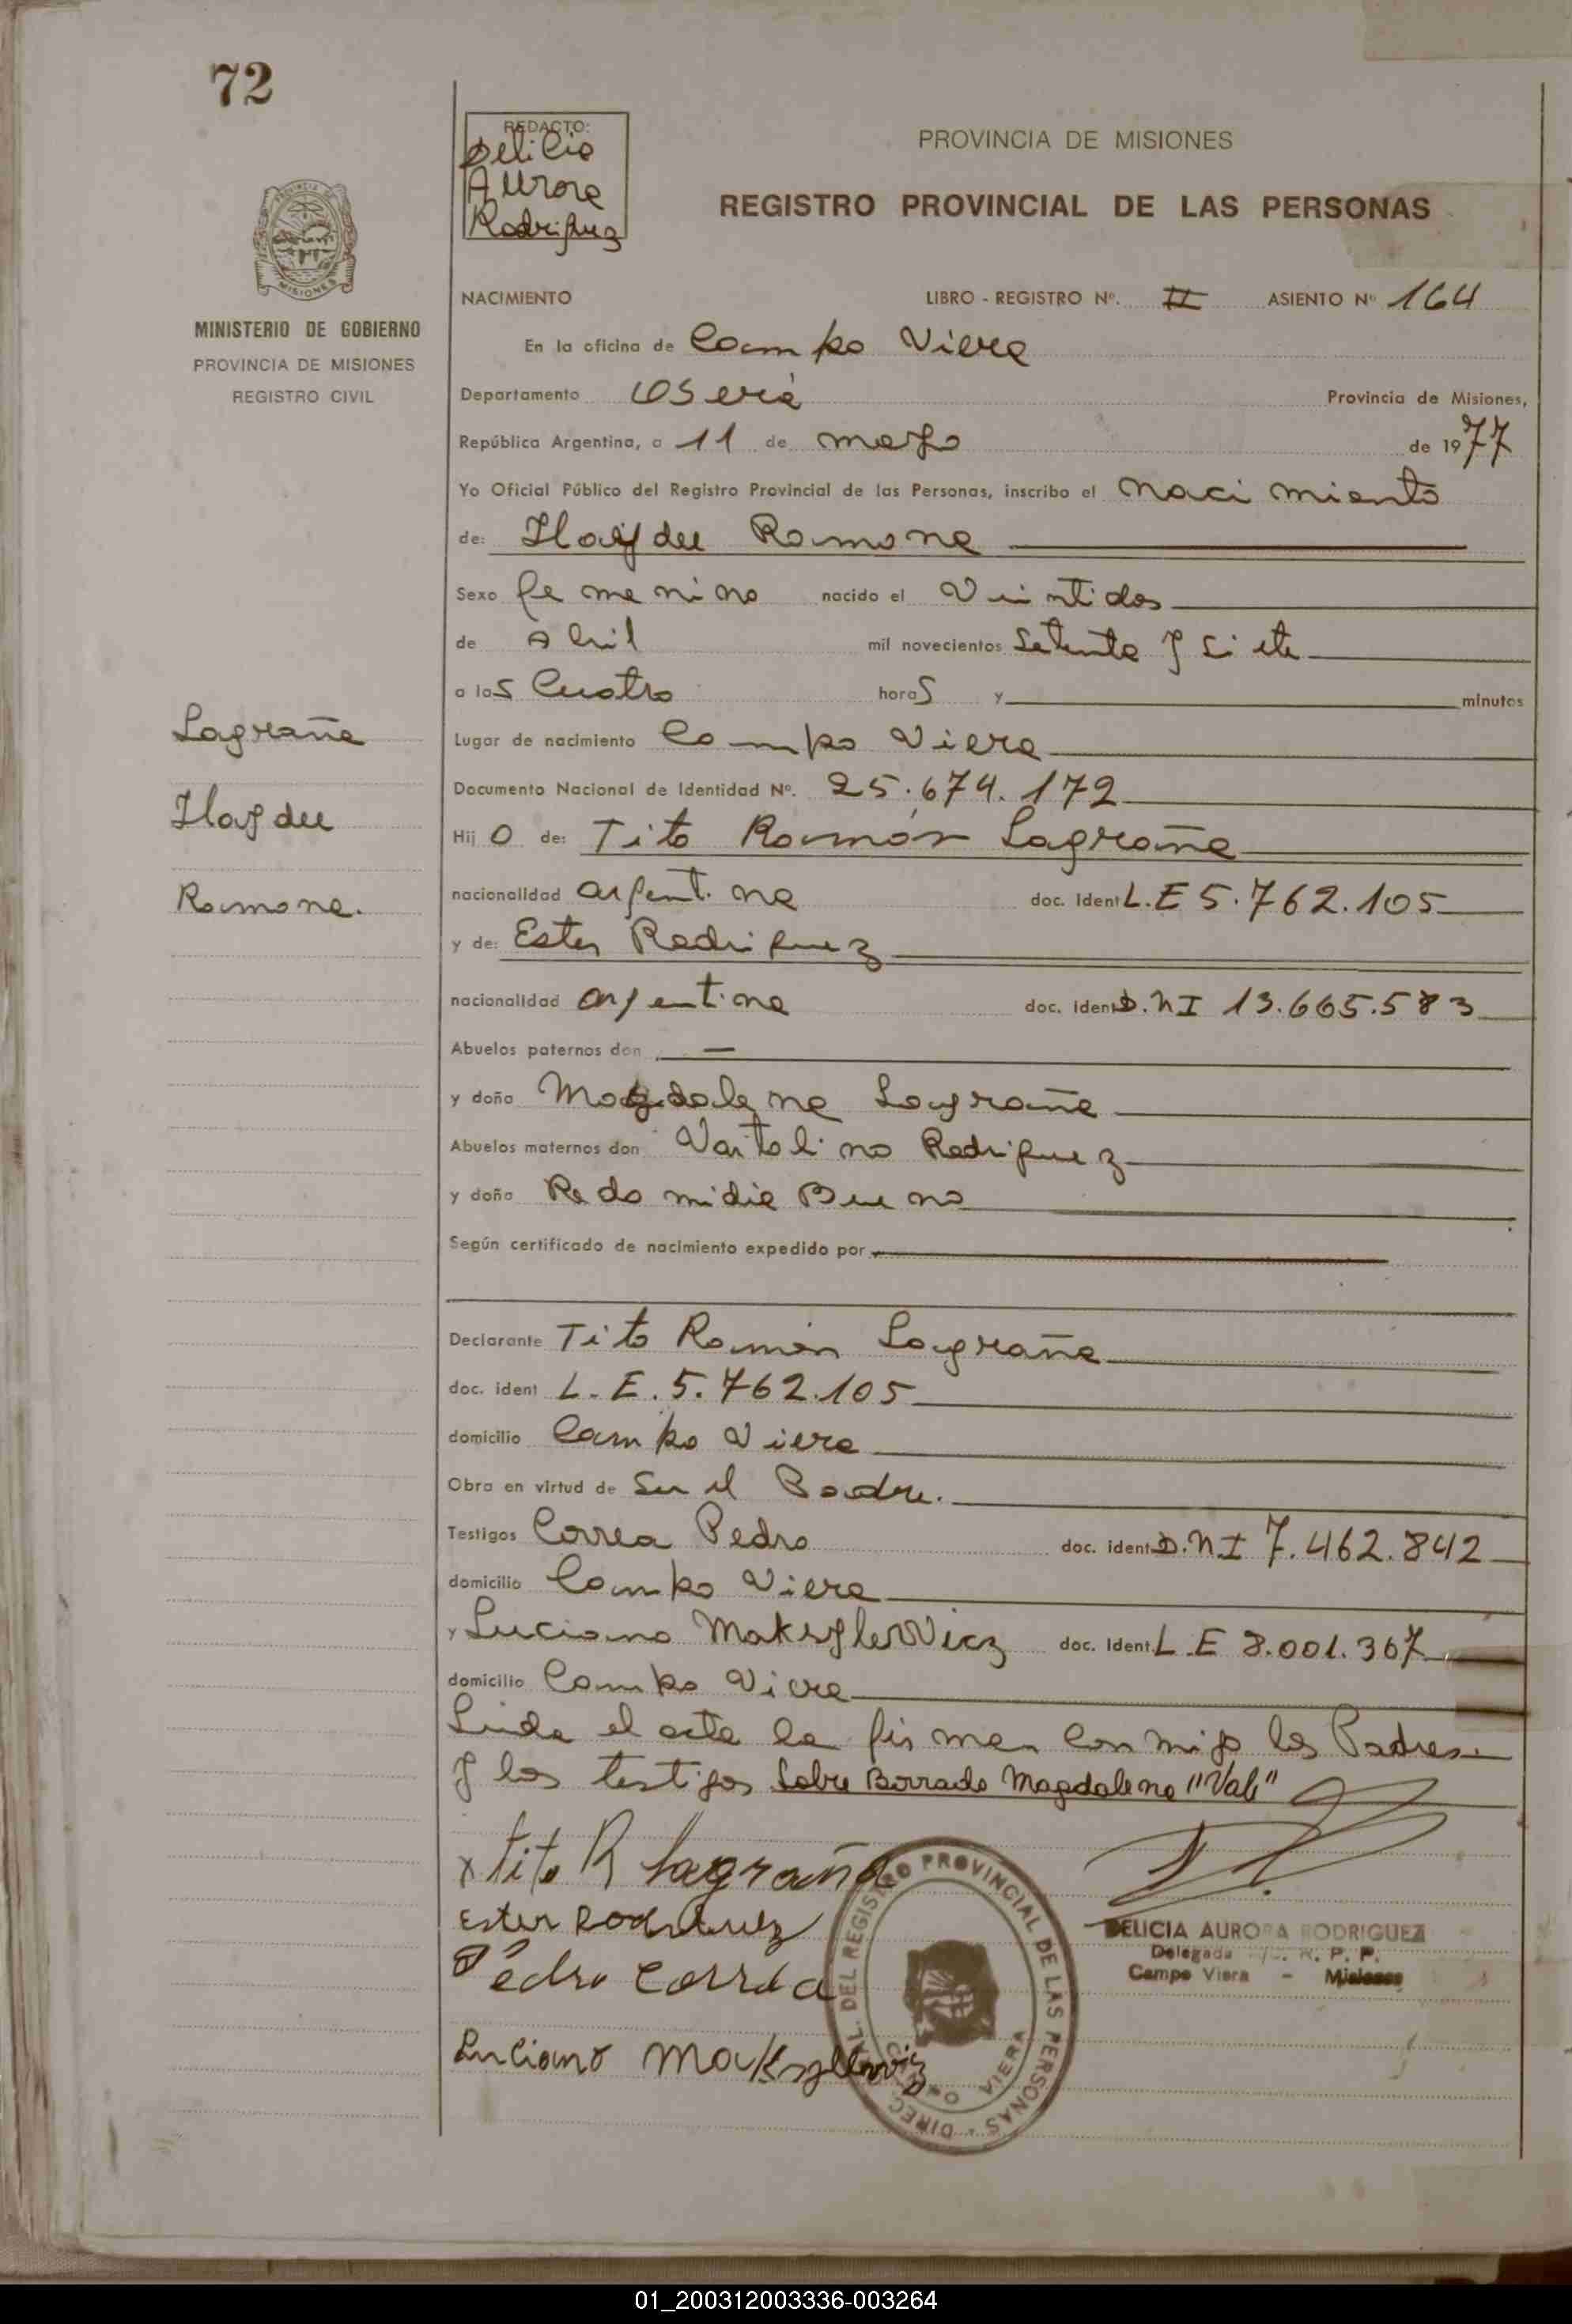 72
REDACTO:
Delicia
Aurora
Rodriguez
PROVINCIA DE MISIONES
REGISTRO PROVINCIAL DE LAS PERSONAS
MINISTERIO DE GOBIERNO
PROVINCIA DE MISIONES
REGISTRO CIVIL
NACIMIENTO LIBRO - REGISTRO Nº. II ASIENTO Nº 164
En la oficina de Campo Viera
Departamento Oberá Provincia de Misiones,
República Argentina, a 11 de mayo de 1977
Yo Oficial Público del Registro Provincial de las Personas, inscribo el nacimiento
de: Haydee Ramona
Sexo femenino nacido el Veintidos
de Abril mil novecientos Setenta y siete
a las Cuatro horas y minutos
Lugar de nacimiento Campo Viera
Documento Nacional de Identidad Nº. 25.674.172
Hij o de: Tito Ramón Lagraña
nacionalidad argentina doc. Ident L.E 5.762.105
y de: Ester Rodriguez
nacionalidad argentina doc. Ident D.N I 13.665.583
Abuelos paternos don —
y doña Magdalena Lagraña
Abuelos maternos don Vartolino Rodriguez
y doña Redomidia Bueno
Según certificado de nacimiento expedido por
Declarante Tito Ramón Lagraña
doc. ident L.E. 5.762.105
domicilio Campo Viera
Obra en virtud de Ser el Padre.
Testigos Correa Pedro doc. ident D.N I 7.462.842
domicilio Campo Viera
y Luciano Maksylewicz doc. Ident L.E 8.001.367
domicilio Campo Viera
Leida el acta la firman conmigo los Padres
y los testigos Sobre Borrado Magdalena "Vale"
Lagraña
Haydee
Ramona.
x tito R lagraña
Ester Rodriguez
Pedro Correa
Luciano Maksylewicz
DIREC. GRAL. DEL REGISTRO PROVINCIAL DE LAS PERSONAS
CAMPO VIERA
DELICIA AURORA RODRIGUEZ
Delegada R. P. P.
Campo Viera - Misiones
01_200312003336-003264